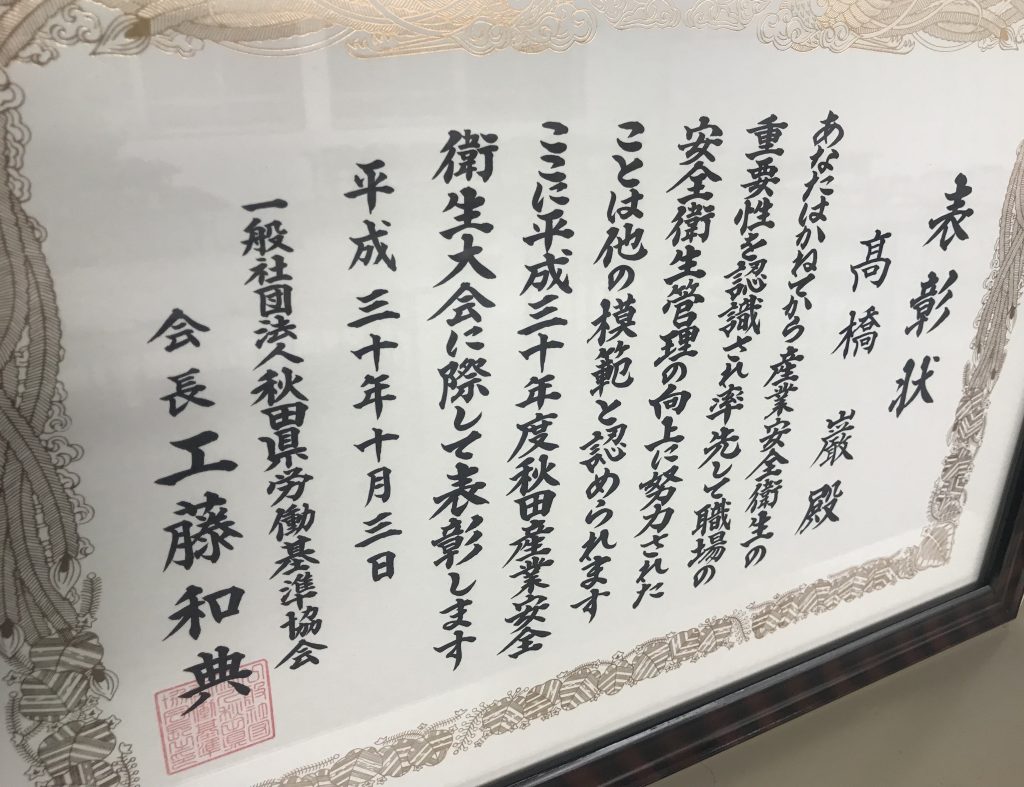 表彰状
髙橋 巌殿
あなたはかねてから産業安全衛生の
重要性を認識され率先して職場の
安全衛生管理の向上に努力された
ことは他の模範と認められます
ここに平成三十年度秋田産業安全
衛生大会に際して表彰します
平成三十年十月三日
一般社団法人秋田県労働基準協会
会長 工藤和典